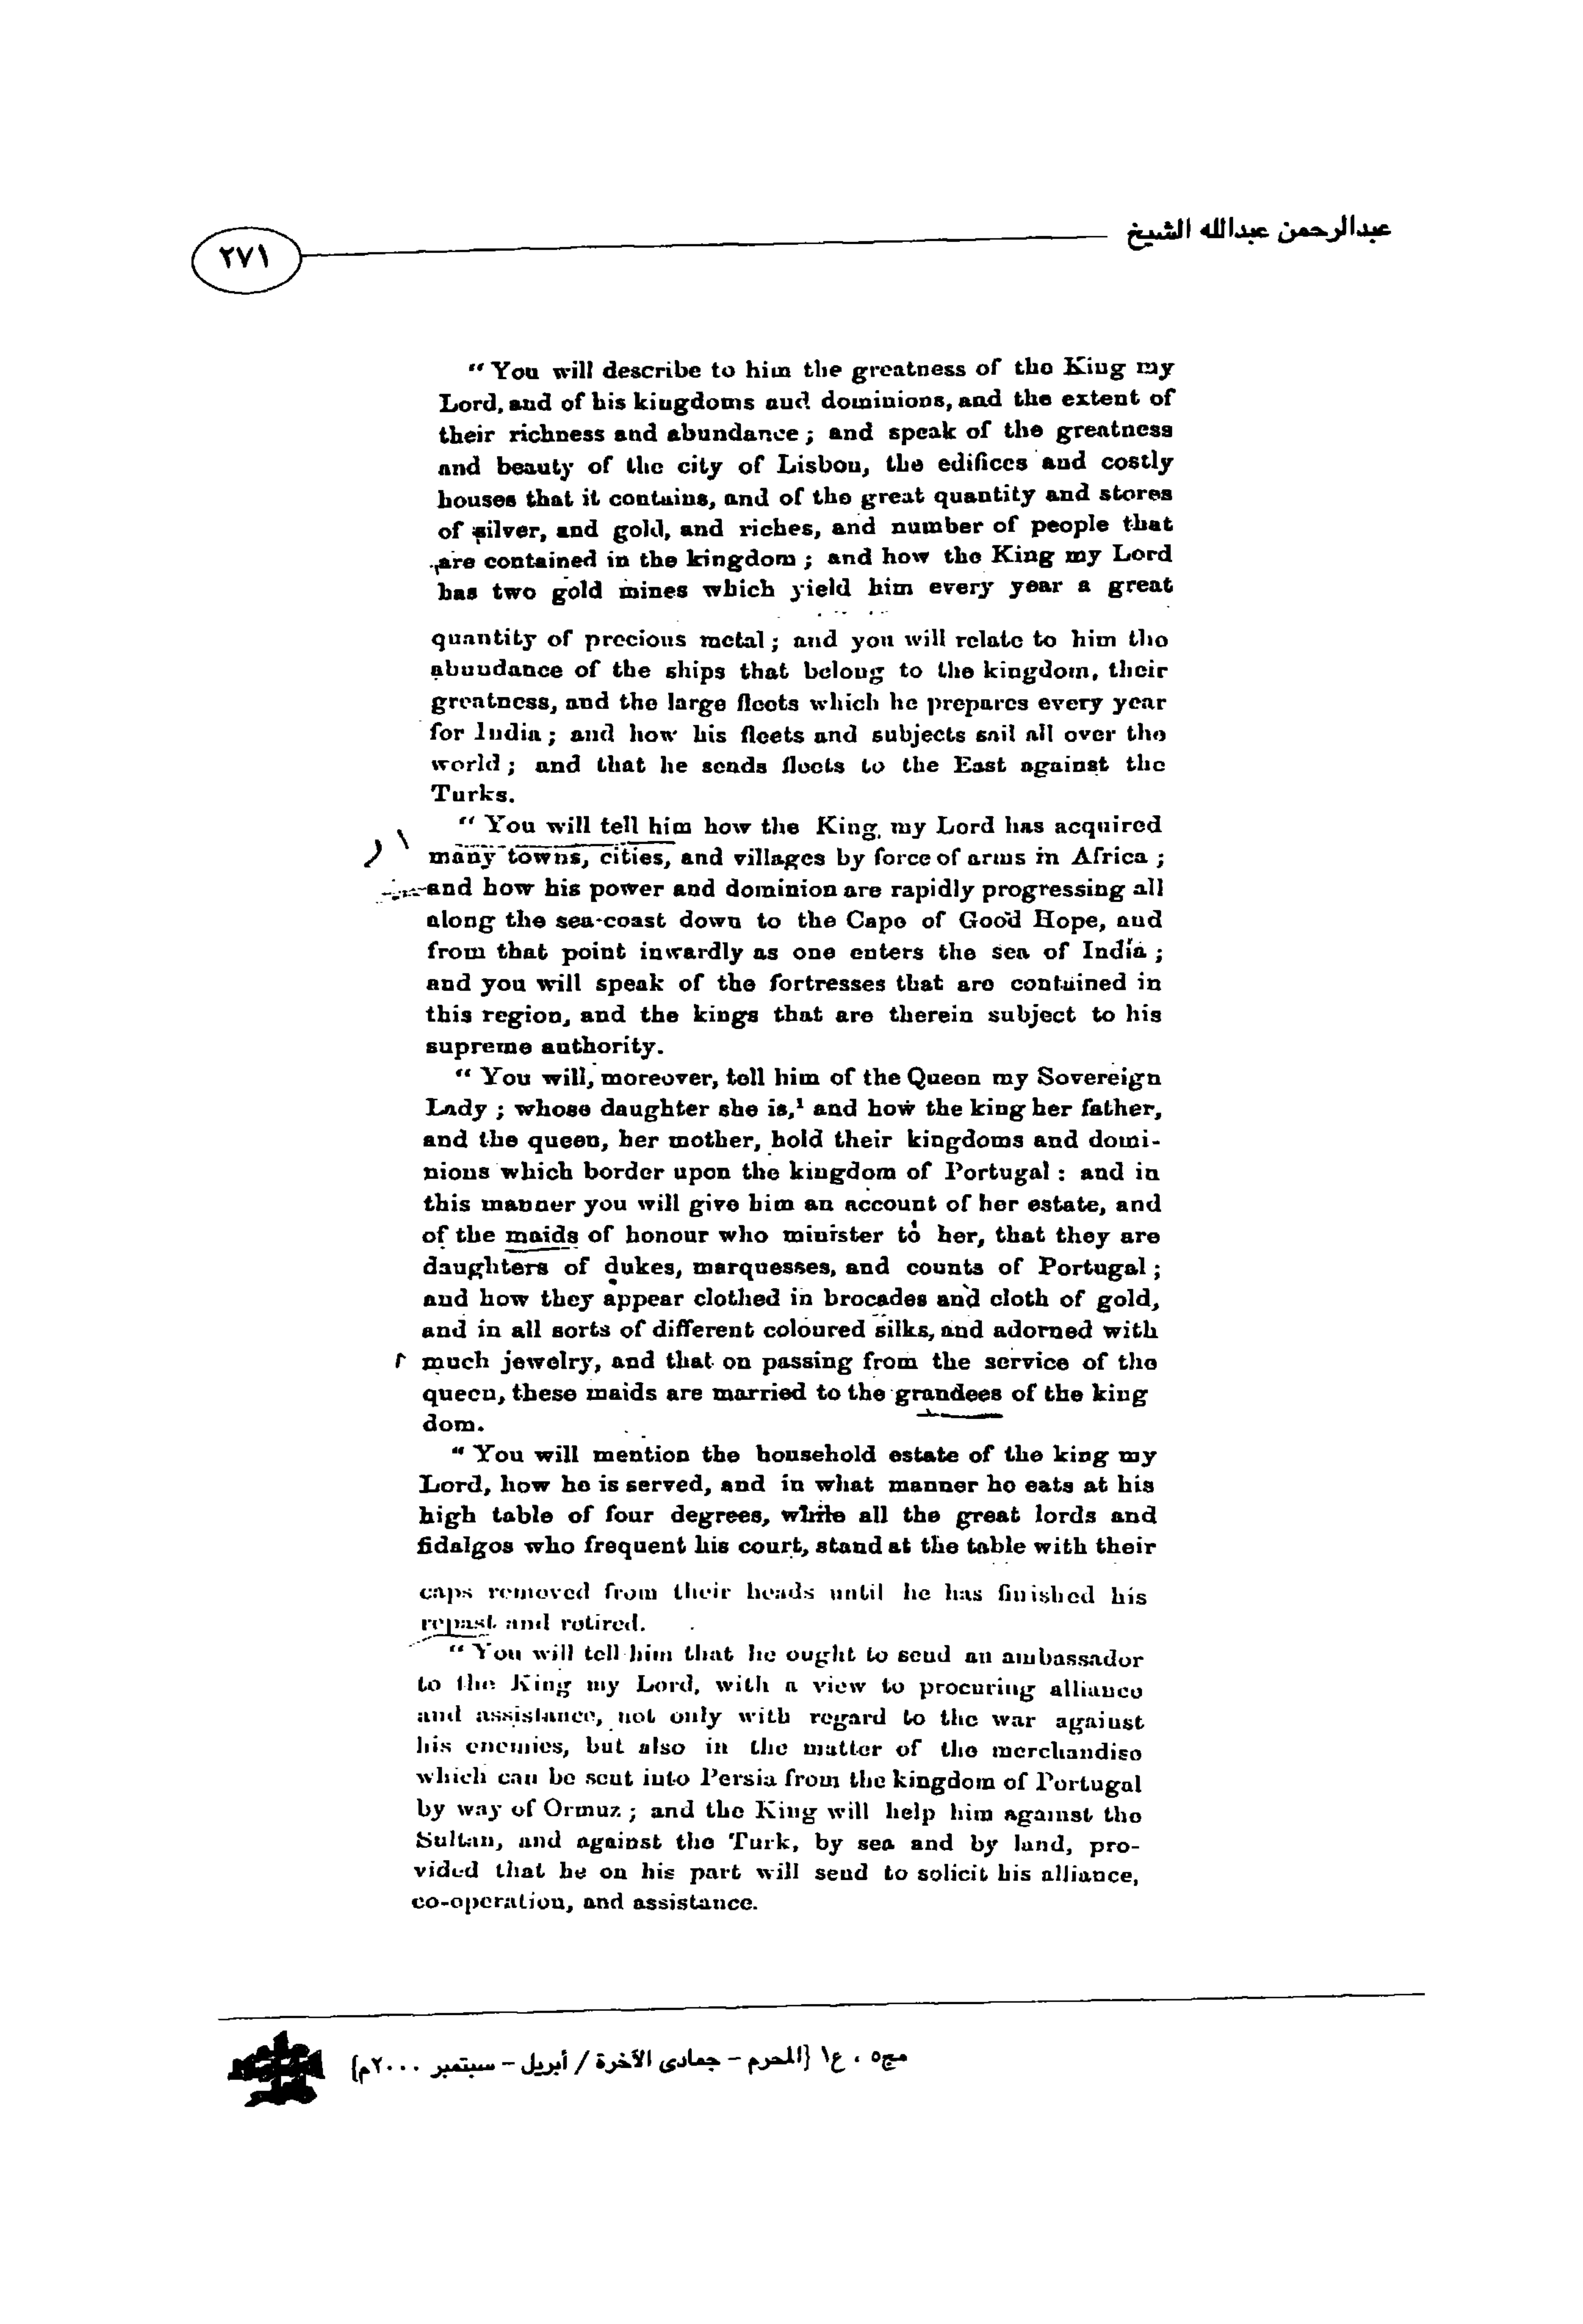 عبدالرحمن عبدالله الشيخ
٢٧١
"You will describe to him the greatness of the King my
Lord, and of his kingdoms and dominions, and the extent of
their richness and abundance; and speak of the greatness
and beauty of the city of Lisbon, the edifices and costly
houses that it contains, and of the great quantity and stores
of silver, and gold, and riches, and number of people that
are contained in the kingdom; and how the King my Lord
has two gold mines which yield him every year a great
quantity of precious metal; and you will relate to him the
abundance of the ships that belong to the kingdom, their
greatness, and the large fleets which he prepares every year
for India; and how his fleets and subjects sail all over the
world; and that he sends fleets to the East against the
Turks.
"You will tell him how the King my Lord has acquired
many towns, cities, and villages by force of arms in Africa;
and how his power and dominion are rapidly progressing all
along the sea-coast down to the Cape of Good Hope, and
from that point inwardly as one enters the sea of India;
and you will speak of the fortresses that are contained in
this region, and the kings that are therein subject to his
supreme authority.
"You will, moreover, tell him of the Queen my Sovereign
Lady; whose daughter she is,¹ and how the king her father,
and the queen, her mother, hold their kingdoms and domi-
nions which border upon the kingdom of Portugal: and in
this manner you will give him an account of her estate, and
of the maids of honour who minister to her, that they are
daughters of dukes, marquesses, and counts of Portugal;
and how they appear clothed in brocades and cloth of gold,
and in all sorts of different coloured silks, and adorned with
much jewelry, and that on passing from the service of the
queen, these maids are married to the grandees of the king
dom.
"You will mention the household estate of the king my
Lord, how he is served, and in what manner he eats at his
high table of four degrees, while all the great lords and
fidalgos who frequent his court, stand at the table with their
caps removed from their heads until he has finished his
repast and retired.
"You will tell him that he ought to send an ambassador
to the King my Lord, with a view to procuring alliance
and assistance, not only with regard to the war against
his enemies, but also in the matter of the merchandise
which can be sent into Persia from the kingdom of Portugal
by way of Ormuz; and the King will help him against the
Sultan, and against the Turk, by sea and by land, pro-
vided that he on his part will send to solicit his alliance,
co-operation, and assistance.
مج٥ ، ع١ {المحرم – جمادى الآخرة / أبريل – سبتمبر ٢٠٠٠م}